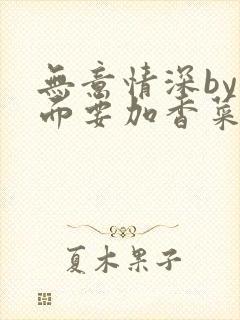 無意情深by
而要加香菜
夏木果子